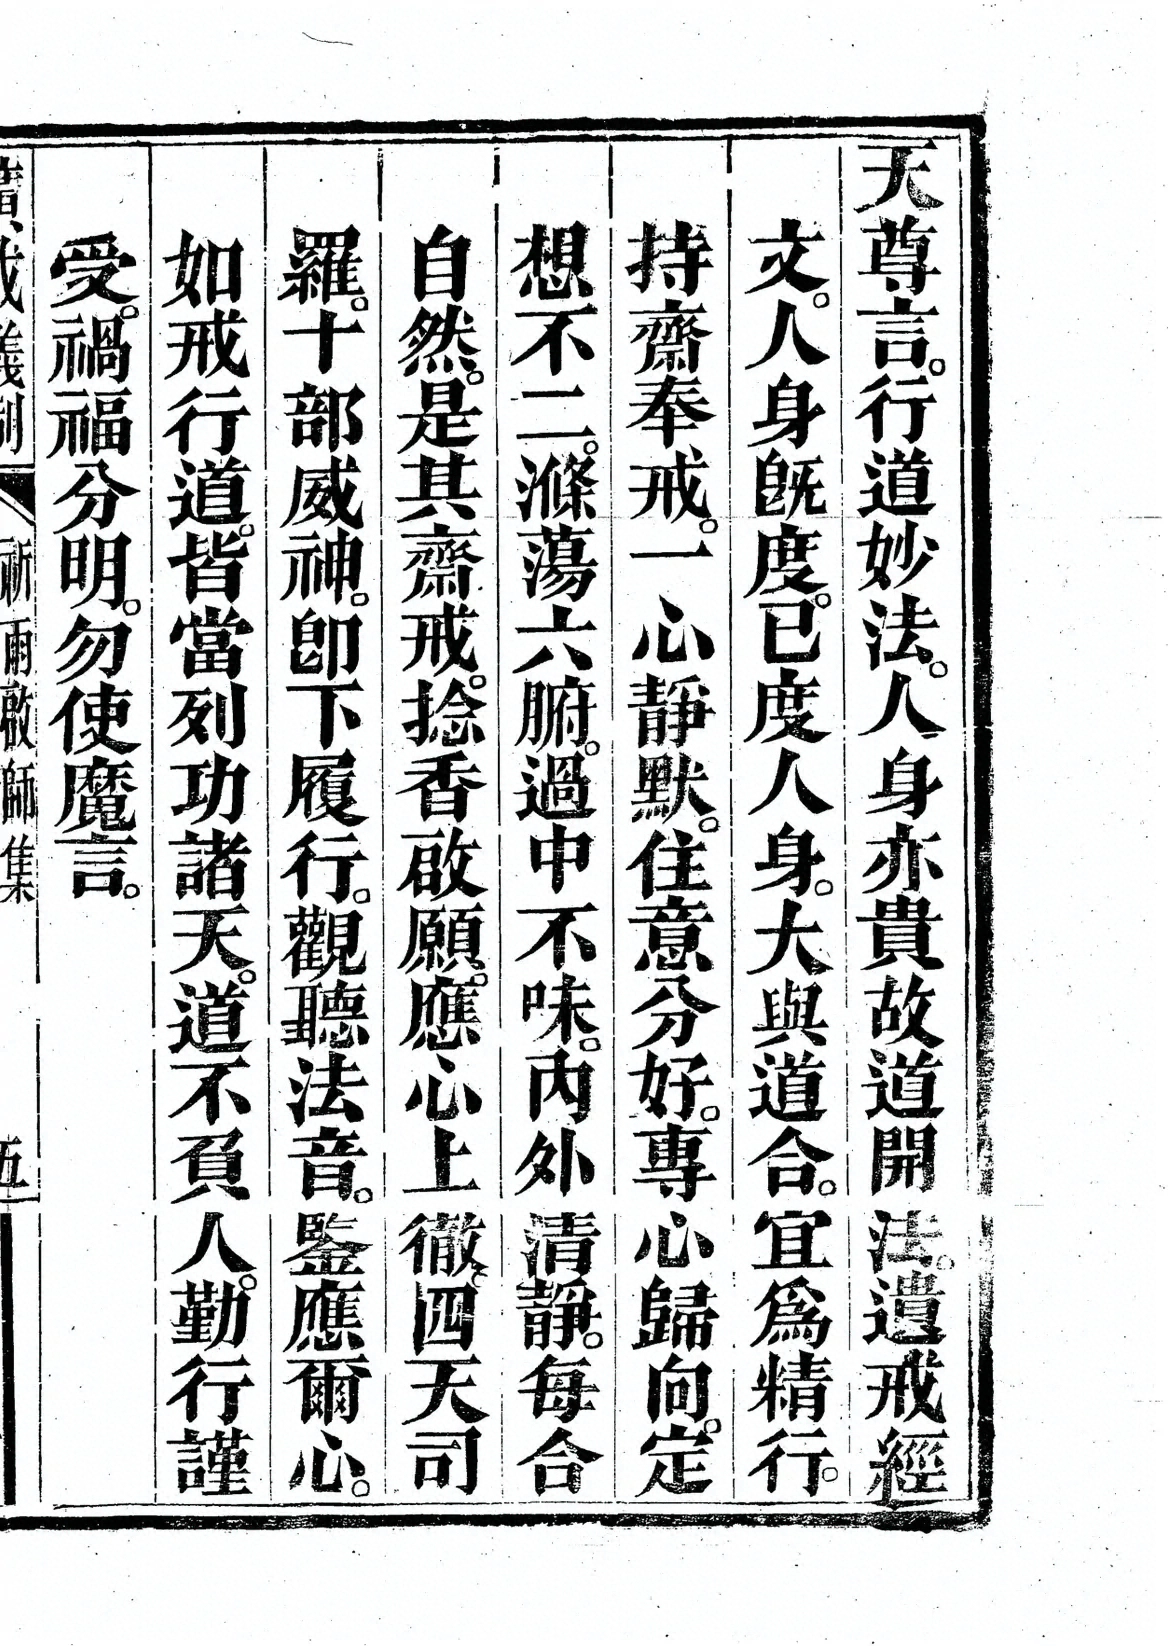 天尊言。行道妙法。人身亦貴故道開法。遺戒經
文。人身旣度。已度人身。大與道合。宜爲精行。
持齋奉戒。一心靜默。住意分好。專心歸向。定
想不二。滌蕩六腑。過中不味。內外清靜。每合
自然。是其齋戒。捻香啟願。應心上徹。四天司
羅。十部威神。卽下履行。觀聽法音。鑒應爾心。
如戒行道。皆當列功諸天。道不負人。勤行謹
受。禍福分明。勿使魔言。
祈雨啟師集
五